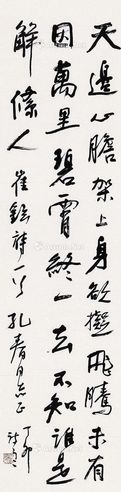 天邊心膽架上身欲擬飛騰未有
因萬里碧霄終一去不知誰是
解條人 崔鉉詩一首
丁卯